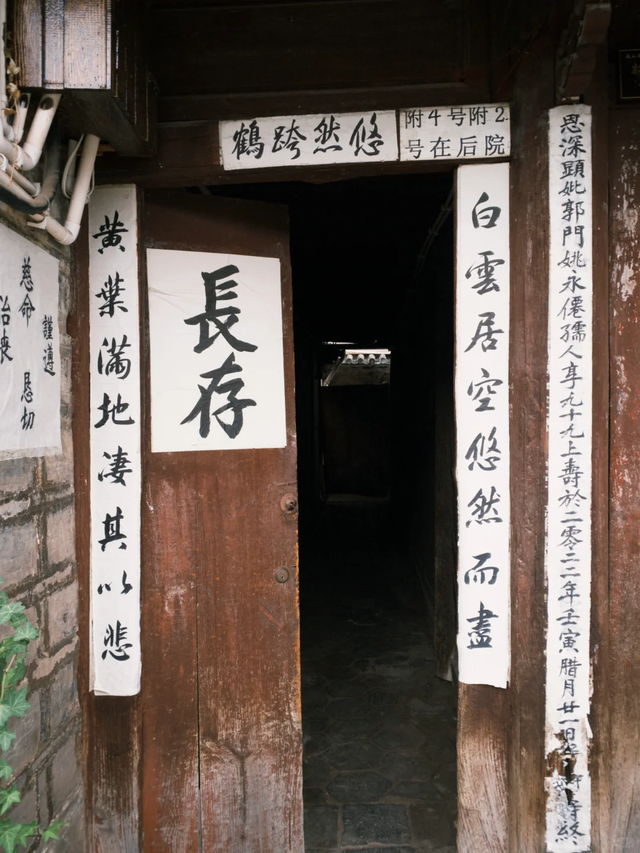 悠然跨鶴
附4号附2
号在后院
恩深顕妣郭門姚永僊孺人享九十九上壽於二零二二年壬寅腊月廿一日時終
白雲居空悠然而盡
長存
黄葉滿地凄其以悲
謹遵
慈命 恳切
治喪